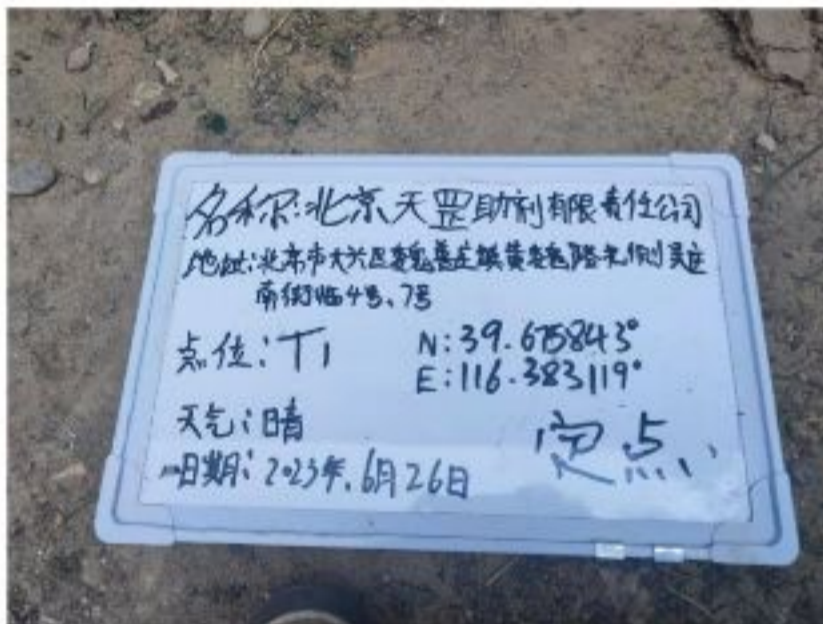 名称:北京天罡助剂有限责任公司
地址:北京市大兴区魏善庄镇黄魏路北侧吴庄
南街临4号、7号
点位:T1
N:39.675843°
E:116.383119°
天气:晴
日期:2023年.6月26日
定点